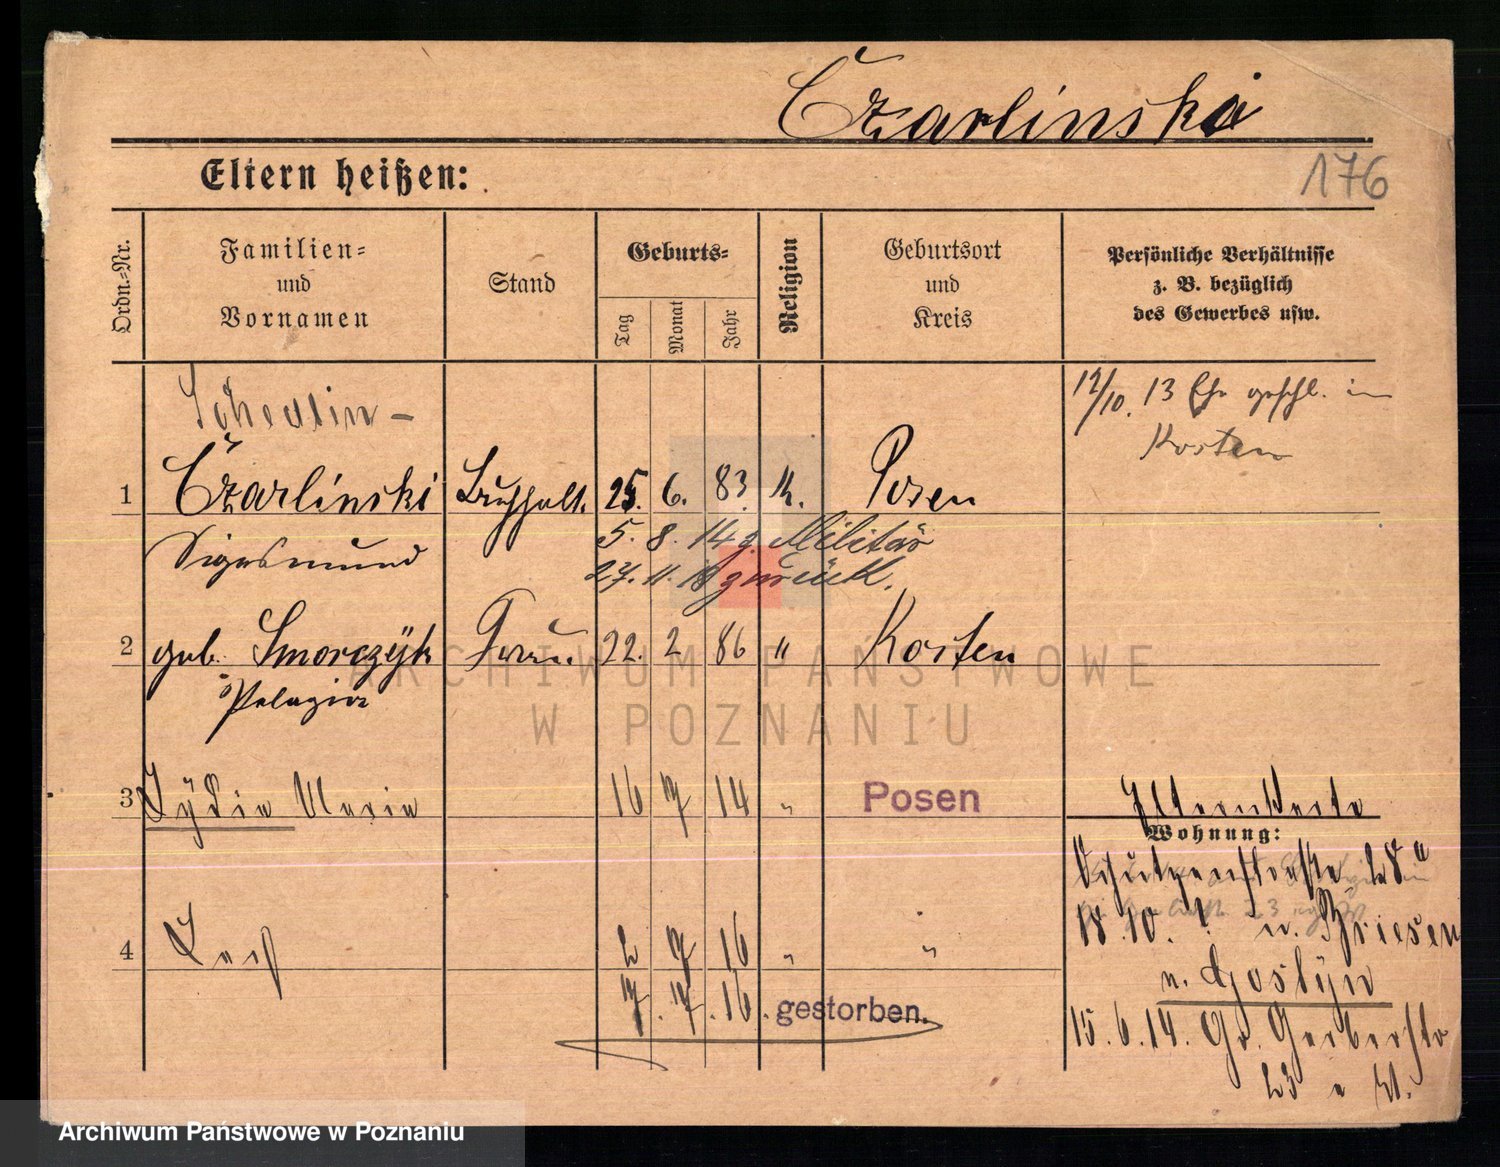 Czarlinski
Eltern heißen:
176
Ordn.-Nr.
Familien-
und
Vornamen
Stand
Geburts-
Tag
Monat
Jahr
Religion
Geburtsort
und
Kreis
Persönliche Verhältnisse
z. B. bezüglich
des Gewerbes usw.
Schedlin-
12/10. 13 Ehe geschl. in
Kosten
1 Czarlinski Buchhalt. 25. 6. 83. k. Posen
Sigismund 5. 8. 14 z. Militär
27. 11. 18 zurück.
2 geb. Smorczyk Frau. 22. 2 86 " Kosten
Pelagia
3 Lydia Maria 16 7 14 " Posen
Elternkarte
Wohnung:
Schützenstraße
4 2 7 16 " "
18. 10. v. Briesen
n. Gostyn
7. 7. 16. gestorben.
15. 6. 14. Gr. Gerberstr
23
ARCHIWUM PAŃSTWOWE
W POZNANIU
Archiwum Państwowe w Poznaniu